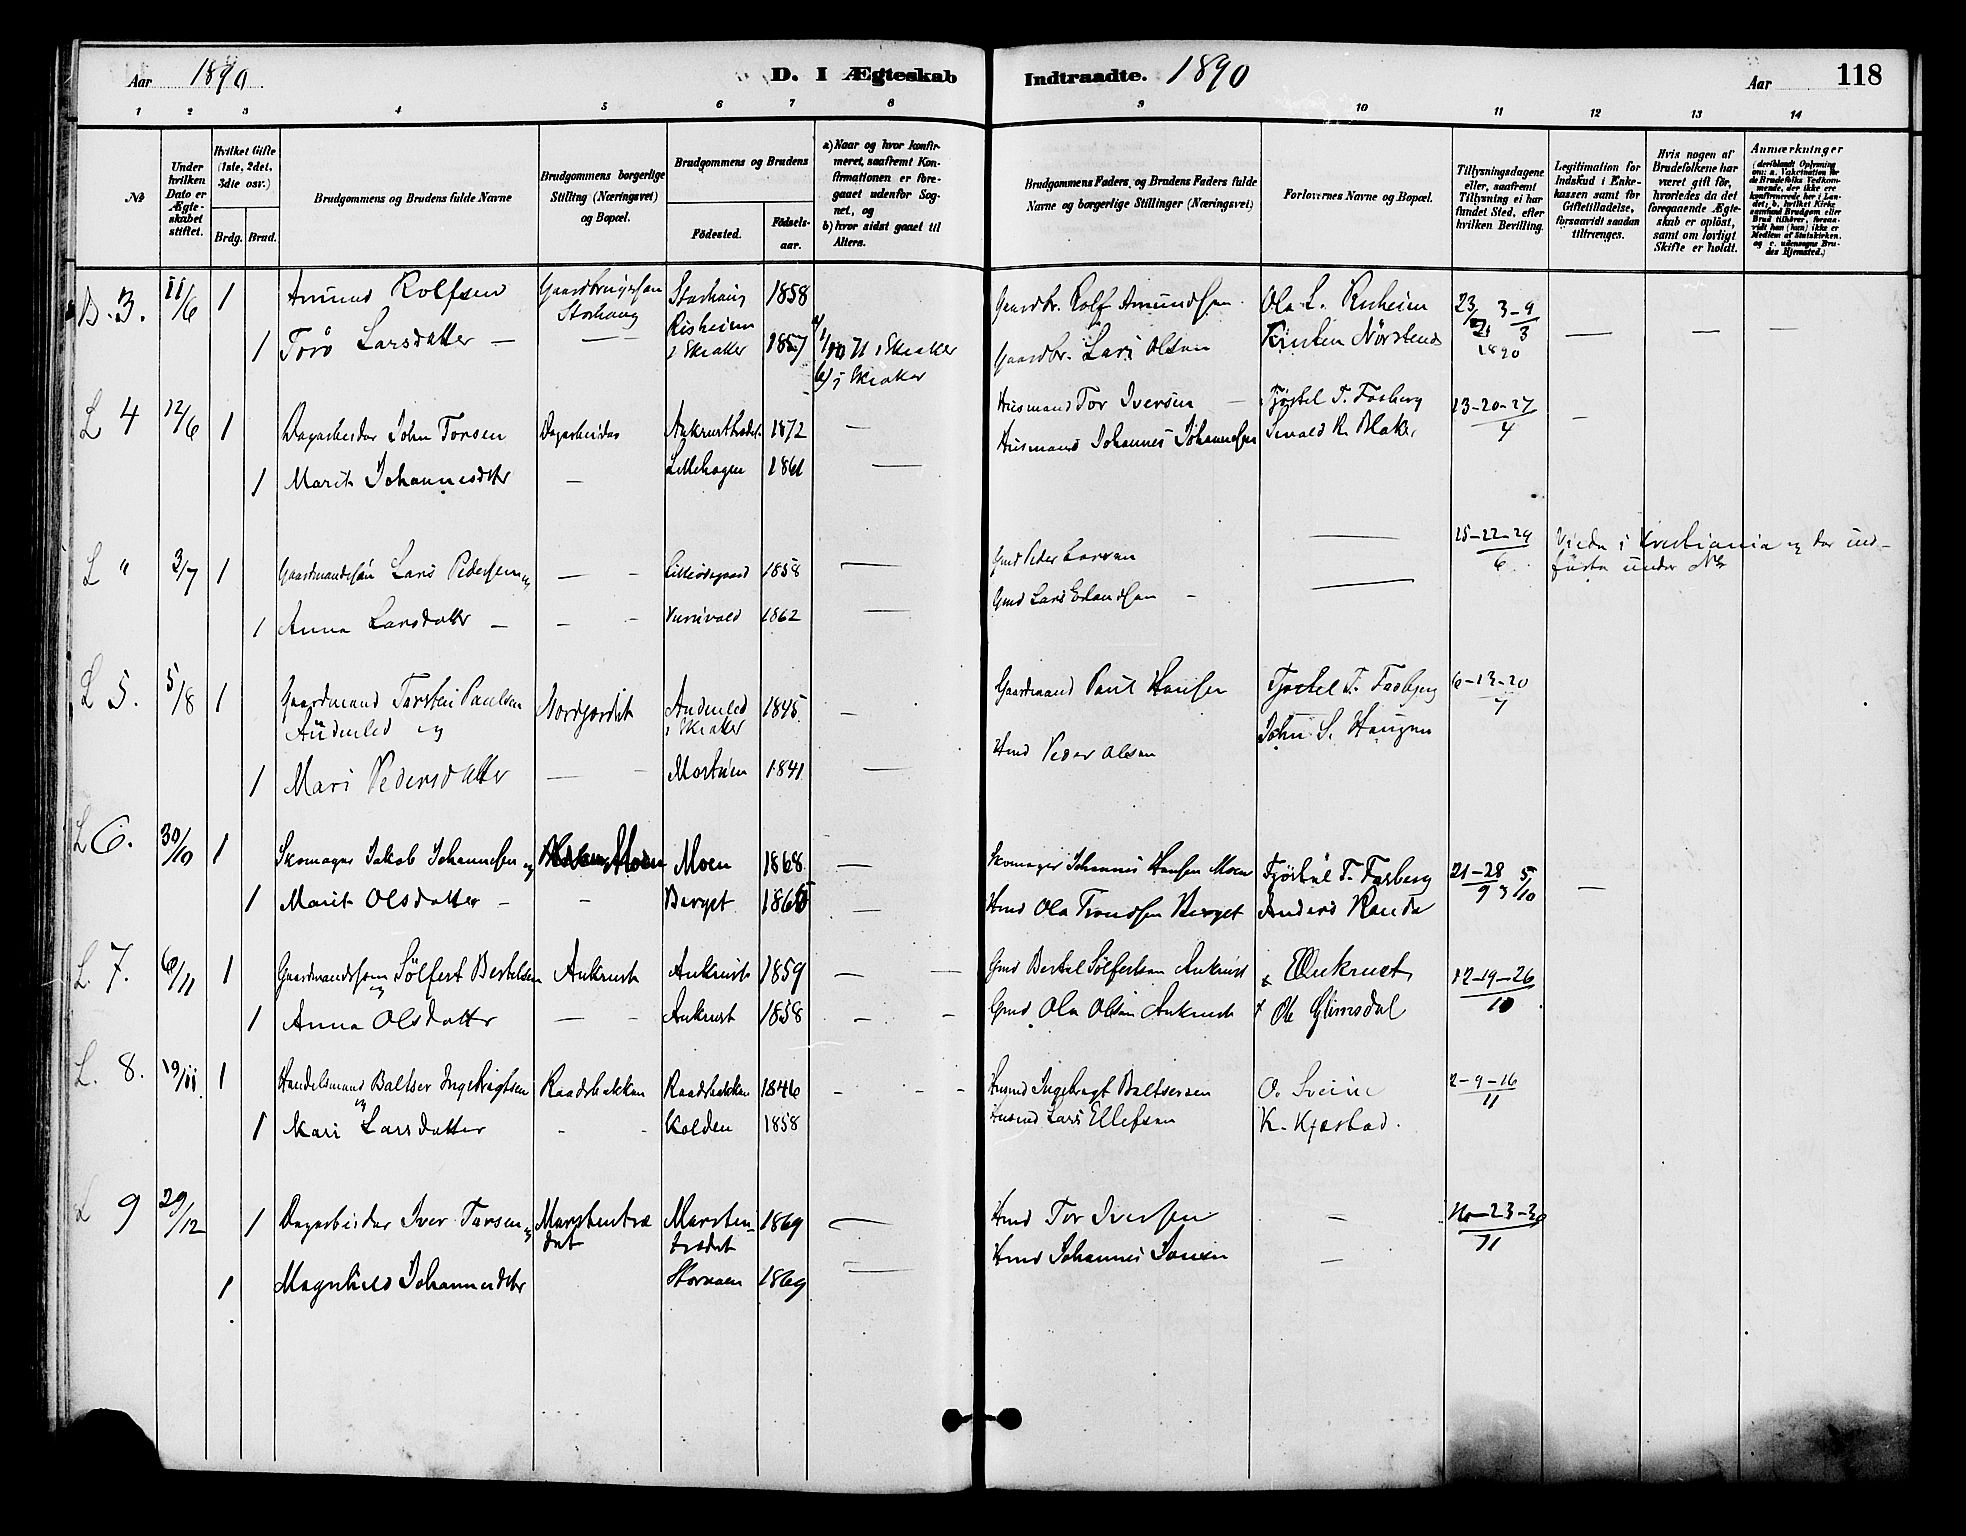 Aar 1890
D. I Ægteskab Indtraadte. 1890
Aar 118
1 2 3 4 5 6 7 8 9 10 11 12 13 14
No
Under hvilken Dato er Ægteskabet stiftet.
Hvilket Gifte (1ste, 2det, 3die osv.)
Brdg. Brud.
Brudgommens og Brudens fulde Navne
Brudgommens borgerlige Stilling (Næringsvei) og Bopæl.
Brudgommens og Brudens
Födested.
Födselsaar.
a) Naar og hvor konfirmeret, saafremt Konfirmationen er foregaaet udenfor Sognet, og
b) hvor sidst gaaet til Alters.
Brudgommens Faders og Brudens Faders fulde Navne og borgerlige Stillinger (Næringsvei)
Forlovernes Navne og Bopæl.
Tillysningsdagene eller, saafremt Tillysning ei har fundet Sted, efter hvilken Bevilling.
Legitimation for Indskud i Enkekassen samt for Giftetilladelse, forsaavidt saadan tiltrænges.
Hvis nogen af Brudefolkene har været gift för, hvorledes da det foregaaende Ægteskab er oplöst, samt om lovligt Skifte er holdt.
Anmærkninger
B. 3. 11/6 1 Amund Rolfsen Gaardbrugersøn Storhaug Storhaug 1858 Gaardbr. Rolf Amundsen Ola L. Risheim 23/2 3-9/3 1890
1 Torø Larsdatter Risheim i Skiaker 1857 i Skiaker Gaardbr. Lars Olsen Kristen Nørstend
b) i Skiaker
L 4 12/6 1 Dagarbeider John Torsen Dagarbeider 1872 Husmand Tor Iversen Tjøstel T. Farberg 13-20-27/4
1 Marit Johannesdtr Littehagen 1861 Husmand Johannes Johannesen Sevald R. Blaker
L " 3/7 1 Gaardmandssøn Lars Pedersen og Lilleødegaard 1858 Gmd Peder Larsen 15-22-29/6 Viede i Kristiania og der indførte under No
1 Anna Larsdatter 1862 Gmd Lars Erlandsen
L 5. 5/8 1 Gaardmand Torstein Paulsen Audenled og Nordjordet Audenled i Skiaker 1845 Gaardmand Paul Hansen Tjostel T. Farberg 6-13-20/7
John S. Haugen
1 Mari Pedersdatter 1841 Hmd Peder Olsen
L 6. 30/10 1 Skomager Jakob Johannesen og Moen Moen 1868 Skomager Johannes Hansen Moen Tjøstul T. Farberg 21-28/9 og 5/10
1 Marit Olsdatter Berget 1865 Hmd Ola Trondsen Berget Anders Randa
L. 7. 6/11 1 Gaardmandssøn Sølfest Bertelsen og Aukrust Aukrust 1859 Gmd Bertel Sølfestsen Aukrust E Aukrust 12-19-26/10
1 Anna Olsdatter Aukrust 1858 Gmd Ola Olsen Aukrust Ole Glimsdal
L. 8. 19/11 1 Handelsmand Baltser Ingebrigtsen og Raadsbakken Raadsbakken 1846 Husmd Ingebrigt Baltsersen O. Sveine 2-9-16/11
1 Mari Larsdatter Kolden 1858 Husmd Lars Ellefsen K. Kjæstad.
L 9 29/12 1 Dagarbeider Iver Torsen og Marstentrædet Marstentrædet 1869 Hmd Tor Iversen 16-23-30/11
1 Magnhild Johannesdtr Stormoen 1869 Hmd Johannes Jonsen